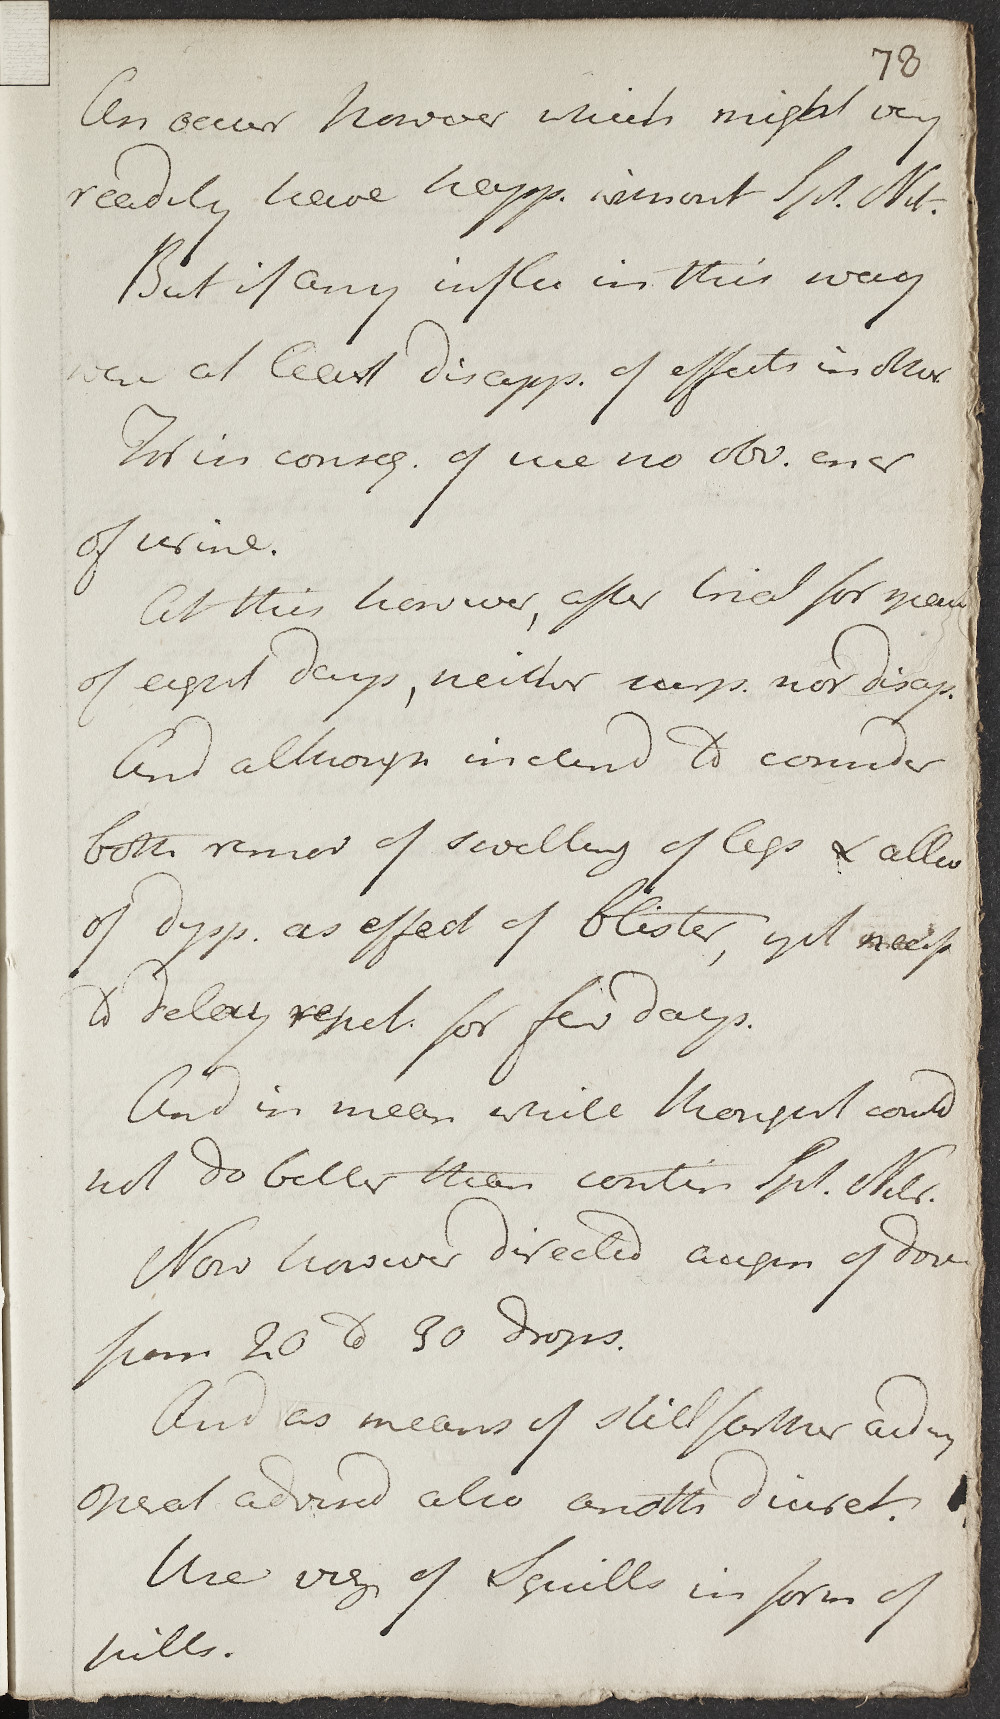 78
An occur however which might very
readily have happ. without Spt. Nit.
But if any influ in this way
were at least disapp. of effects in other
For in conseq. of use no obv. encr
of urine.
At this however, after trial for space
of eight days, neither surp. nor disap.
And although inclend to consider
both remov of swelling of legs & allev
of dysp. as effect of blister, yet necess
to delay repet. for few days.
And in mean while thought could
not do better than contin Spt. Nitr.
Now however directed augm of dose
from 20 to 30 drops.
And as means of still farther aiding
operat advised also anoth diuret.
Use viz of Squills in form of
pills.